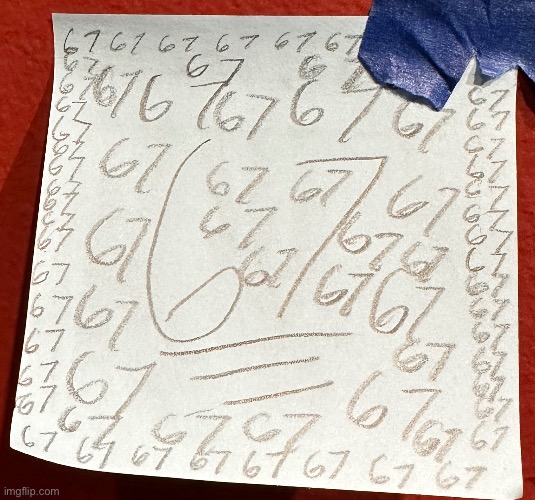 67 67 67 67 67 67
67 67 6
67 67 67 67 67 67
67 67
67 67
67 67
67 67 67
67 67 67 67 67
67 67 67
67 67 67 67
67 67 67 67
67
67 67 67 67
67 67 67
67 67 67
67 67 67
67 67 67 67
67 67 67 67 67
67 67 67 67 67 67 67 67
imgflip.com